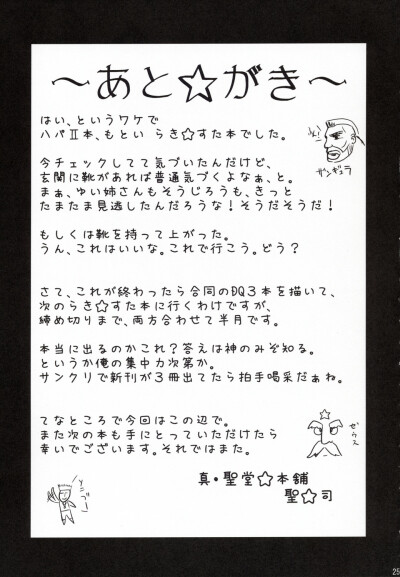 ～あと☆がき～
はい、というワケで
ハバⅡ本、もとい らき☆すた本でした。
今チェックしてて気づいたんだけど、
玄関に靴があれば普通気づくよなぁ、と。
まぁ、ゆい姉さんもそうじろうも、きっと
たまたま見逃したんだろうな！そうだそうだ！
もしくは靴を持って上がった。
うん、これはいいな。これで行こう。どう？
さて、これが終わったら合同のDQ3本を描いて、
次のらき☆すた本に行くわけですが、
締め切りまで、両方合わせて半月です。
本当に出るのかこれ？答えは神のみぞ知る。
というか俺の集中力次第か。
サンクリで新刊が3冊出てたら拍手喝采だぁね。
てなところで今回はこの辺で。
また次の本も手にとっていただけたら
幸いでございます。それではまた。
真・聖堂☆本舗
聖☆司
ゼウス
25